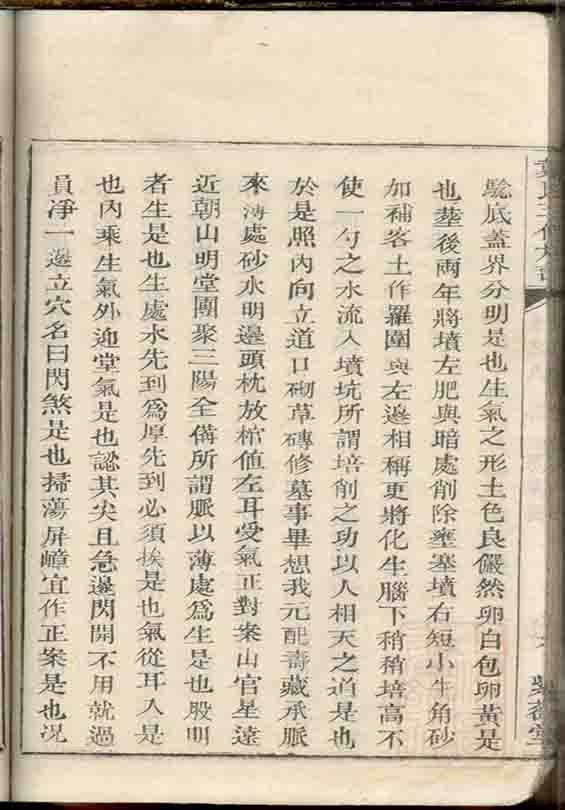 驗底蓋界分明是也生氣之形土色良儼然卵白包卵黃是
也塟後兩年將墳左肥與暗處削除壅塞墳右短小牛角砂
如補客土作羅圍與左邉相稱更將化生腦下稍稍培高不
使一勺之水流入墳坑所謂培削之功以人相天之道是也
於是照內向立道口砌草磚修墓事畢想我元配壽藏承脈
來薄處砂水明邉頭枕放棺值左耳受氣正對案山官星遠
近朝山明堂團聚三陽全備所謂脈以薄處爲生是也股明
者生是也生處水先到爲厚先到必須挨是也氣從耳入是
也內乘生氣外迎堂氣是也認其尖且急邉閃開不用就過
員凈一邉立穴名曰閃煞是也掃蕩屏嶂宜作正案是也況